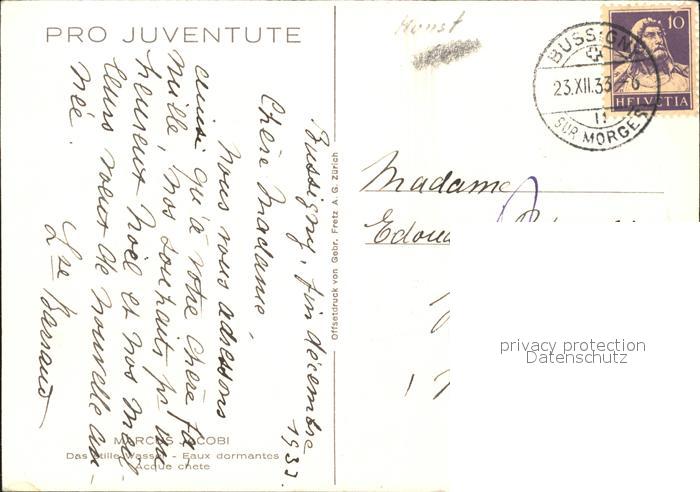 PRO JUVENTUTE
Bussigny, fin décembre
1933
Chère Madame,
Nous vous adressons
ainsi qu'à votre chère fa-
mille, nos souhaits pr un
heureux Noël et nos meil-
leurs voeux de nouvelle an-
née.
Lse Barraud
MARCUS JACOBI
Das stille Wasser - Eaux dormantes
Acque chete
Offsetdruck von Gebr. Fretz A. G. Zürich
BUSSIGNY
23.XII.33-6
SUR MORGES
10
HELVETIA
Madame
privacy protection
Datenschutz